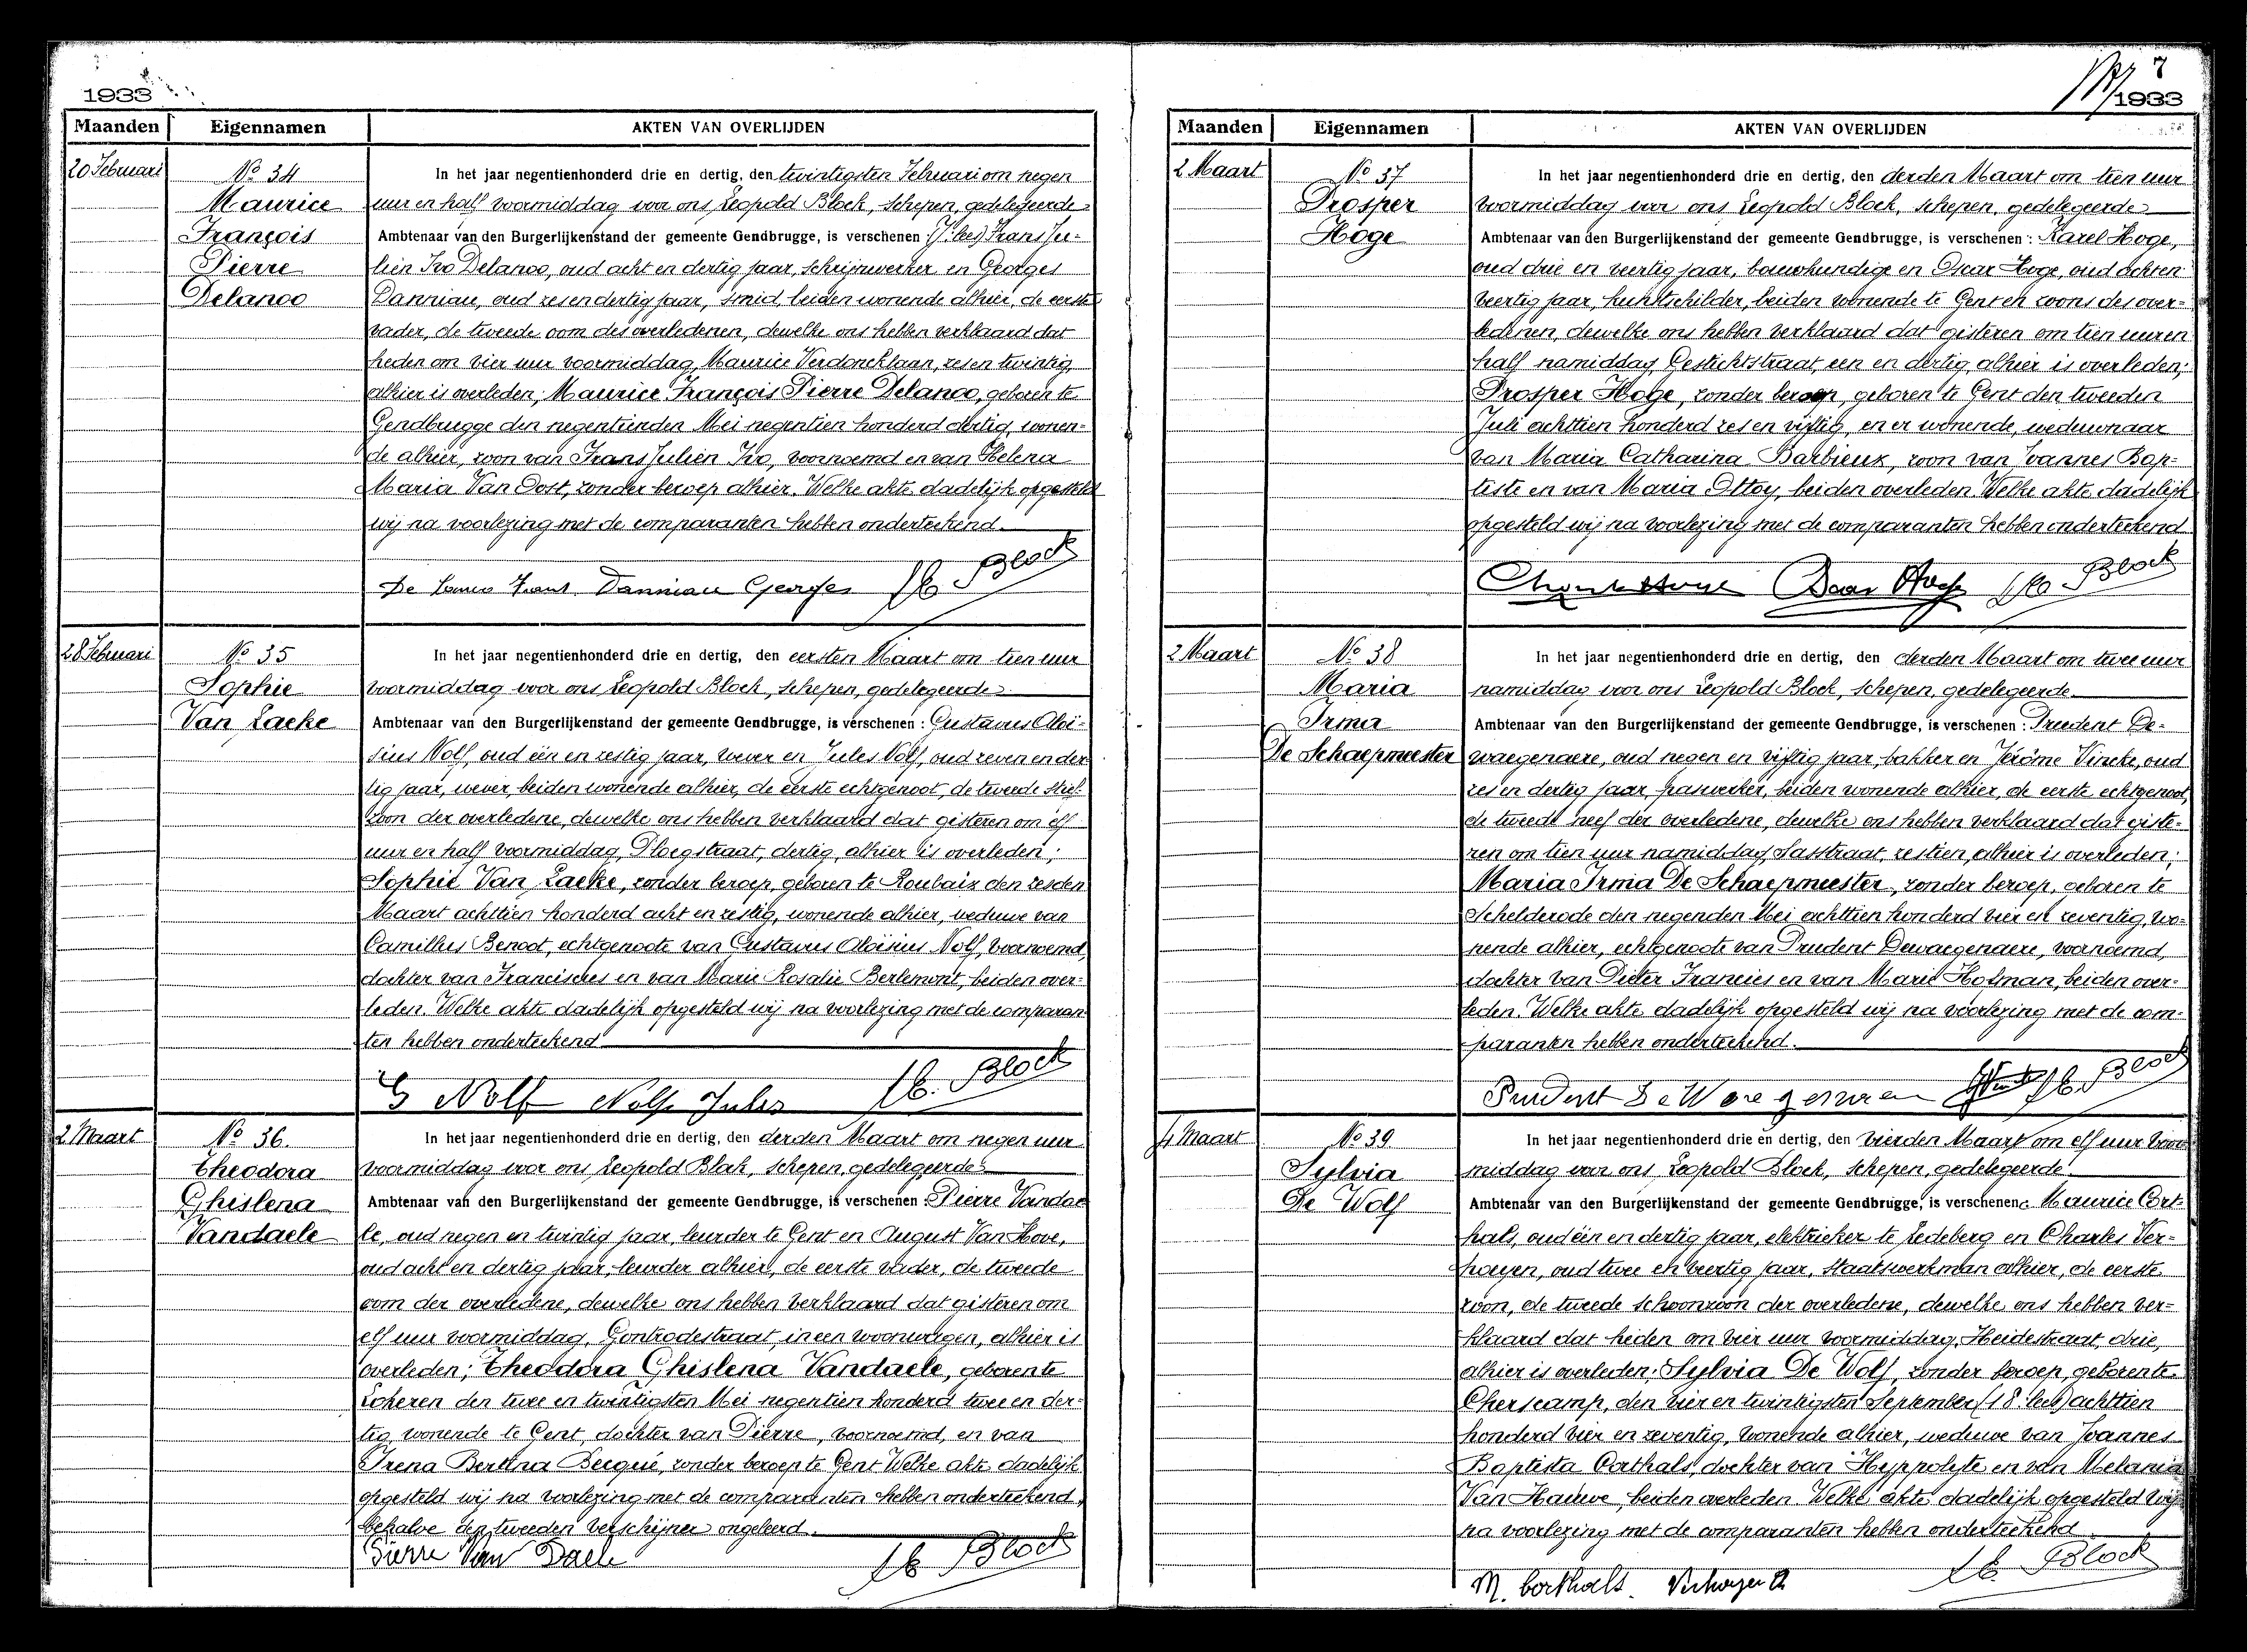 1933
Maanden Eigennamen AKTEN VAN OVERLIJDEN
20 Februari
No 34
Maurice
François
Pierre
Delanoo
In het jaar negentienhonderd drie en dertig, den twintigsten Februari om negen
uur en half voormiddag voor ons Leopold Block, schepen, gedelegeerde
Ambtenaar van den Burgerlijkenstand der gemeente Gendbrugge, is verschenen: Frans Ju-
lien Ivo Delanoo, oud acht en dertig jaar, schrijnwerker en Georges
Danniau, oud zes en dertig jaar, smid, beiden wonende alhier, de eerste
vader, de tweede oom des overledenen, dewelke ons hebben verklaard dat
heden om vier uur voormiddag, Maurice Verdoncklaan, zes en twintig,
alhier is overleden; Maurice François Pierre Delanoo, geboren te
Gendbrugge den negentienden Mei negentien honderd dertig, wonen-
de alhier, zoon van Frans Julien Ivo, voornoemd en van Helena
Maria Van Oost, zonder beroep alhier. Welke akte dadelijk opgesteld
wij na voorlezing met de comparanten hebben onderteekend.
Danniau Georges Block
28 Februari
No 35
Sophie
Van Laeke
In het jaar negentienhonderd drie en dertig, den eersten Maart om tien uur
voormiddag voor ons Leopold Block, schepen, gedelegeerde
Ambtenaar van den Burgerlijkenstand der gemeente Gendbrugge, is verschenen: Gustavus Aloï-
sius Nolf, oud één en zestig jaar, wever en Jules Nolf, oud zeven en der
tig jaar, wever, beiden wonende alhier, de eerste echtgenoot, de tweede stief-
zoon der overledene, dewelke ons hebben verklaard dat gisteren om elf
uur en half voormiddag, Ploegstraat, dertig, alhier is overleden;
Sophie Van Laeke, zonder beroep, geboren te Roubaix den zesden
Maart achttien honderd acht en zestig, wonende alhier, weduwe van
Camillus Benoot, echtgenoote van Gustavus Aloïsius Nolf, voornoemd,
dochter van Franciscus en van Marie Rosalie Berlemont, beiden over-
leden. Welke akte dadelijk opgesteld wij na voorlezing met de comparan
ten hebben onderteekend
G Nolf Nolf Jules Block
2 Maart
No 36.
Theodora
Ghislena
Vandaele
In het jaar negentienhonderd drie en dertig, den derden Maart om negen uur
voormiddag voor ons Leopold Block, schepen, gedelegeerde
Ambtenaar van den Burgerlijkenstand der gemeente Gendbrugge, is verschenen: Pierre Vandae
le, oud negen en twintig jaar, leurder te Gent en August Van Hove,
oud acht en dertig jaar, leurder alhier, de eerste vader, de tweede
oom der overledene, dewelke ons hebben verklaard dat gisteren om
elf uur voormiddag, Gontrodestraat, in een woonwagen, alhier is
overleden; Theodora Ghislena Vandaele, geboren te
Lokeren den twee en twintigsten Mei negentien honderd twee en der-
tig, wonende te Gent, dochter van Pierre, voornoemd, en van
Irena Bertina Becqué, zonder beroep te Gent Welke akte dadelijk
opgesteld wij na voorlezing met de comparanten hebben onderteekend,
behalve den tweeden verschijner ongeleerd.
Pierre Van Daele Block
7
1933
Maanden Eigennamen AKTEN VAN OVERLIJDEN
2 Maart
No 37
Prosper
Hoge
In het jaar negentienhonderd drie en dertig, den derden Maart om tien uur
voormiddag voor ons Leopold Block, schepen, gedelegeerde
Ambtenaar van den Burgerlijkenstand der gemeente Gendbrugge, is verschenen: Karel Hoge,
oud drie en veertig jaar, bouwkundige en Oscar Hoge, oud acht en
veertig jaar, kunstschilder, beiden wonende te Gent en zoons des over-
ledenen, dewelke ons hebben verklaard dat gisteren om tien uur en
half namiddag Gestichtstraat, een en dertig, alhier is overleden;
Prosper Hoge, zonder beroep, geboren te Gent den tweeden
Juli achttien honderd zes en vijftig, en er wonende, weduwnaar
van Maria Catharina Barbieux, zoon van Joannes Bap-
tiste en van Maria Ottoy, beiden overleden Welke akte dadelijk
opgesteld wij na voorlezing met de comparanten hebben onderteekend
Block
2 Maart
No 38
Maria
Irma
De Schaepmeester
In het jaar negentienhonderd drie en dertig, den derden Maart om twee uur
namiddag voor ons Leopold Block, schepen, gedelegeerde
Ambtenaar van den Burgerlijkenstand der gemeente Gendbrugge, is verschenen: Prudent De-
waegenaere, oud negen en vijftig jaar, bakker en Jérôme Vincke, oud
zes en dertig jaar, paswerker, beiden wonende alhier, de eerste echtgenoot,
de tweede neef der overledene, dewelke ons hebben verklaard dat giste-
ren om tien uur namiddag, Sasstraat, zestien, alhier is overleden;
Maria Irma De Schaepmeester, zonder beroep, geboren te
Schelderode den negenden Mei achttien honderd vier en zeventig, wo-
nende alhier, echtgenoote van Prudent Dewaegenaere, voornoemd,
dochter van Pieter Francies en van Marie Hofman, beiden over-
leden. Welke akte dadelijk opgesteld wij na voorlezing met de com-
paranten hebben onderteekend.
Prudent Block
4 Maart
No 39
Sylvia
De Wolf
In het jaar negentienhonderd drie en dertig, den vierden Maart om elf uur voor
middag voor ons Leopold Block, schepen, gedelegeerde
Ambtenaar van den Burgerlijkenstand der gemeente Gendbrugge, is verschenen: Maurice Cort-
hals, oud één en dertig jaar, elektrieker te Ledeberg en Charles Ver-
hoeyen, oud twee en veertig jaar, staatswerkman alhier, de eerste
zoon, de tweede schoonzoon der overledene, dewelke ons hebben ver-
klaard dat heden om vier uur voormiddag, Heidestraat, drie,
alhier is overleden; Sylvia De Wolf, zonder beroep, geboren te
Cherscamp, den vier en twintigsten September (18: lees) achttien
honderd vier en zeventig, wonende alhier, weduwe van Joannes
Baptista Corthals, dochter van Hyppolyte en van Melania
Van Hauwe, beiden overleden Welke akte dadelijk opgesteld wij
na voorlezing met de comparanten hebben onderteekend
M. Corthals. Block